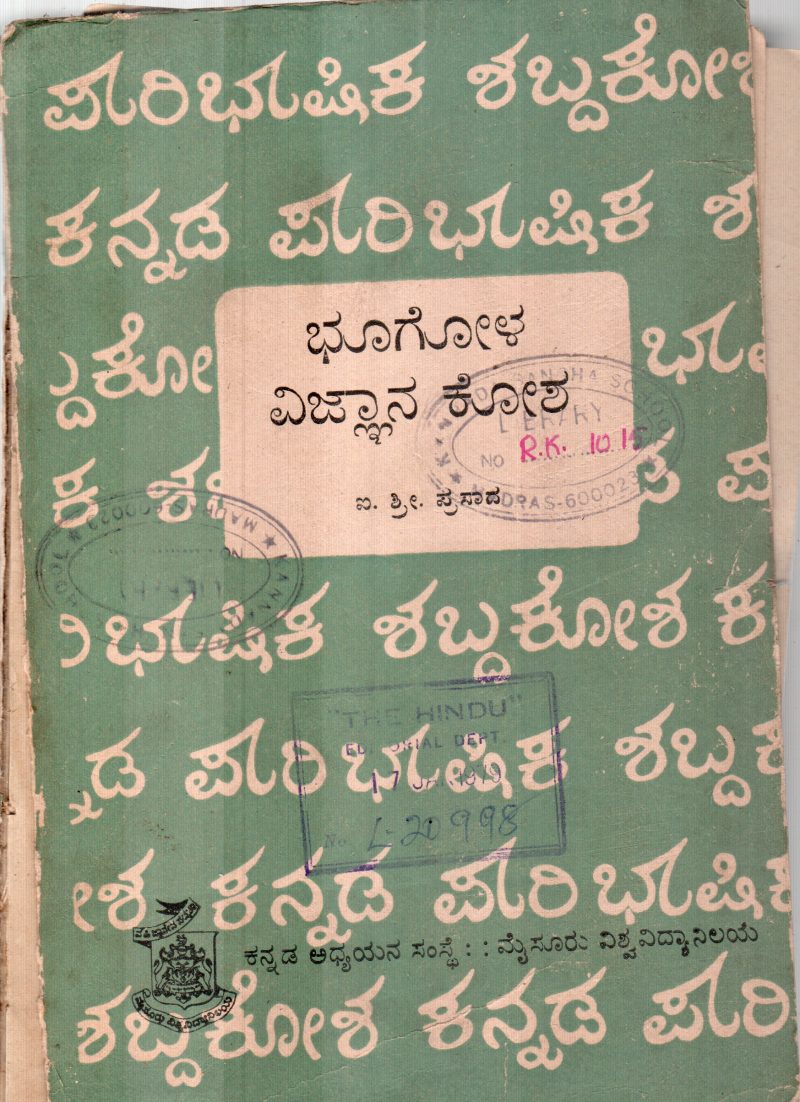 ಪಾರಿಭಾಷಿಕ ಶಬ್ದಕೋಶ
ಕನ್ನಡ ಪಾರಿಭಾಷಿಕ ಶ
ಬ್ದಕೋ
ಭಾ
ಭೂಗೋಳ
ವಿಜ್ಞಾನ ಕೋಶ
LIBRARY
NO R.K. 10 15
MADRAS-600023
ಐ. ಶ್ರೀ. ಪ್ರಸಾದ
ಕ ಶ
ಪ
MADRAS-600023
NO
ರಿಭಾಷಿಕ ಶಬ್ದಕೋಶ ಕ
"THE HINDU"
EDITORIAL DEPT.
17 JAN 1979
No. L-20998
ನ್ನಡ ಪಾರಿಭಾಷಿಕ ಶಬ್ದಕ
ೋಶ ಕನ್ನಡ ಪಾರಿಭಾಷಿಕ
ಕನ್ನಡ ಅಧ್ಯಯನ ಸಂಸ್ಥೆ : : ಮೈಸೂರು ವಿಶ್ವವಿದ್ಯಾನಿಲಯ
ಮೈಸೂರು ವಿಶ್ವವಿದ್ಯಾನಿಲಯ
ಶಬ್ದಕೋಶ ಕನ್ನಡ ಪಾರಿ